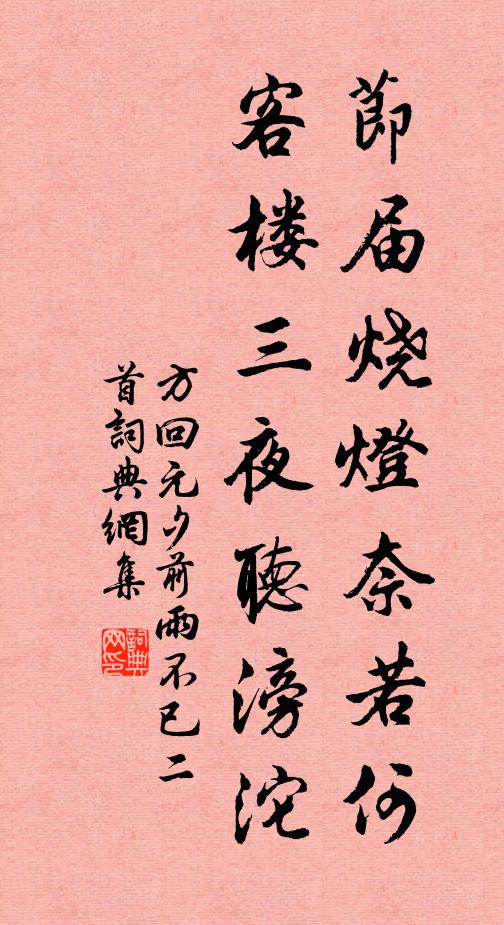 節届烧燈奈若何
客楼三夜聽滂沱
方回元夕前雨不已二
首詞典網集
詞典
网印